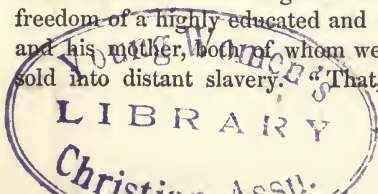 freedom of a highly educated and
and his mother, both of whom we
sold into distant slavery. "That,
Young Women's
LIBRARY
Christian Assn.